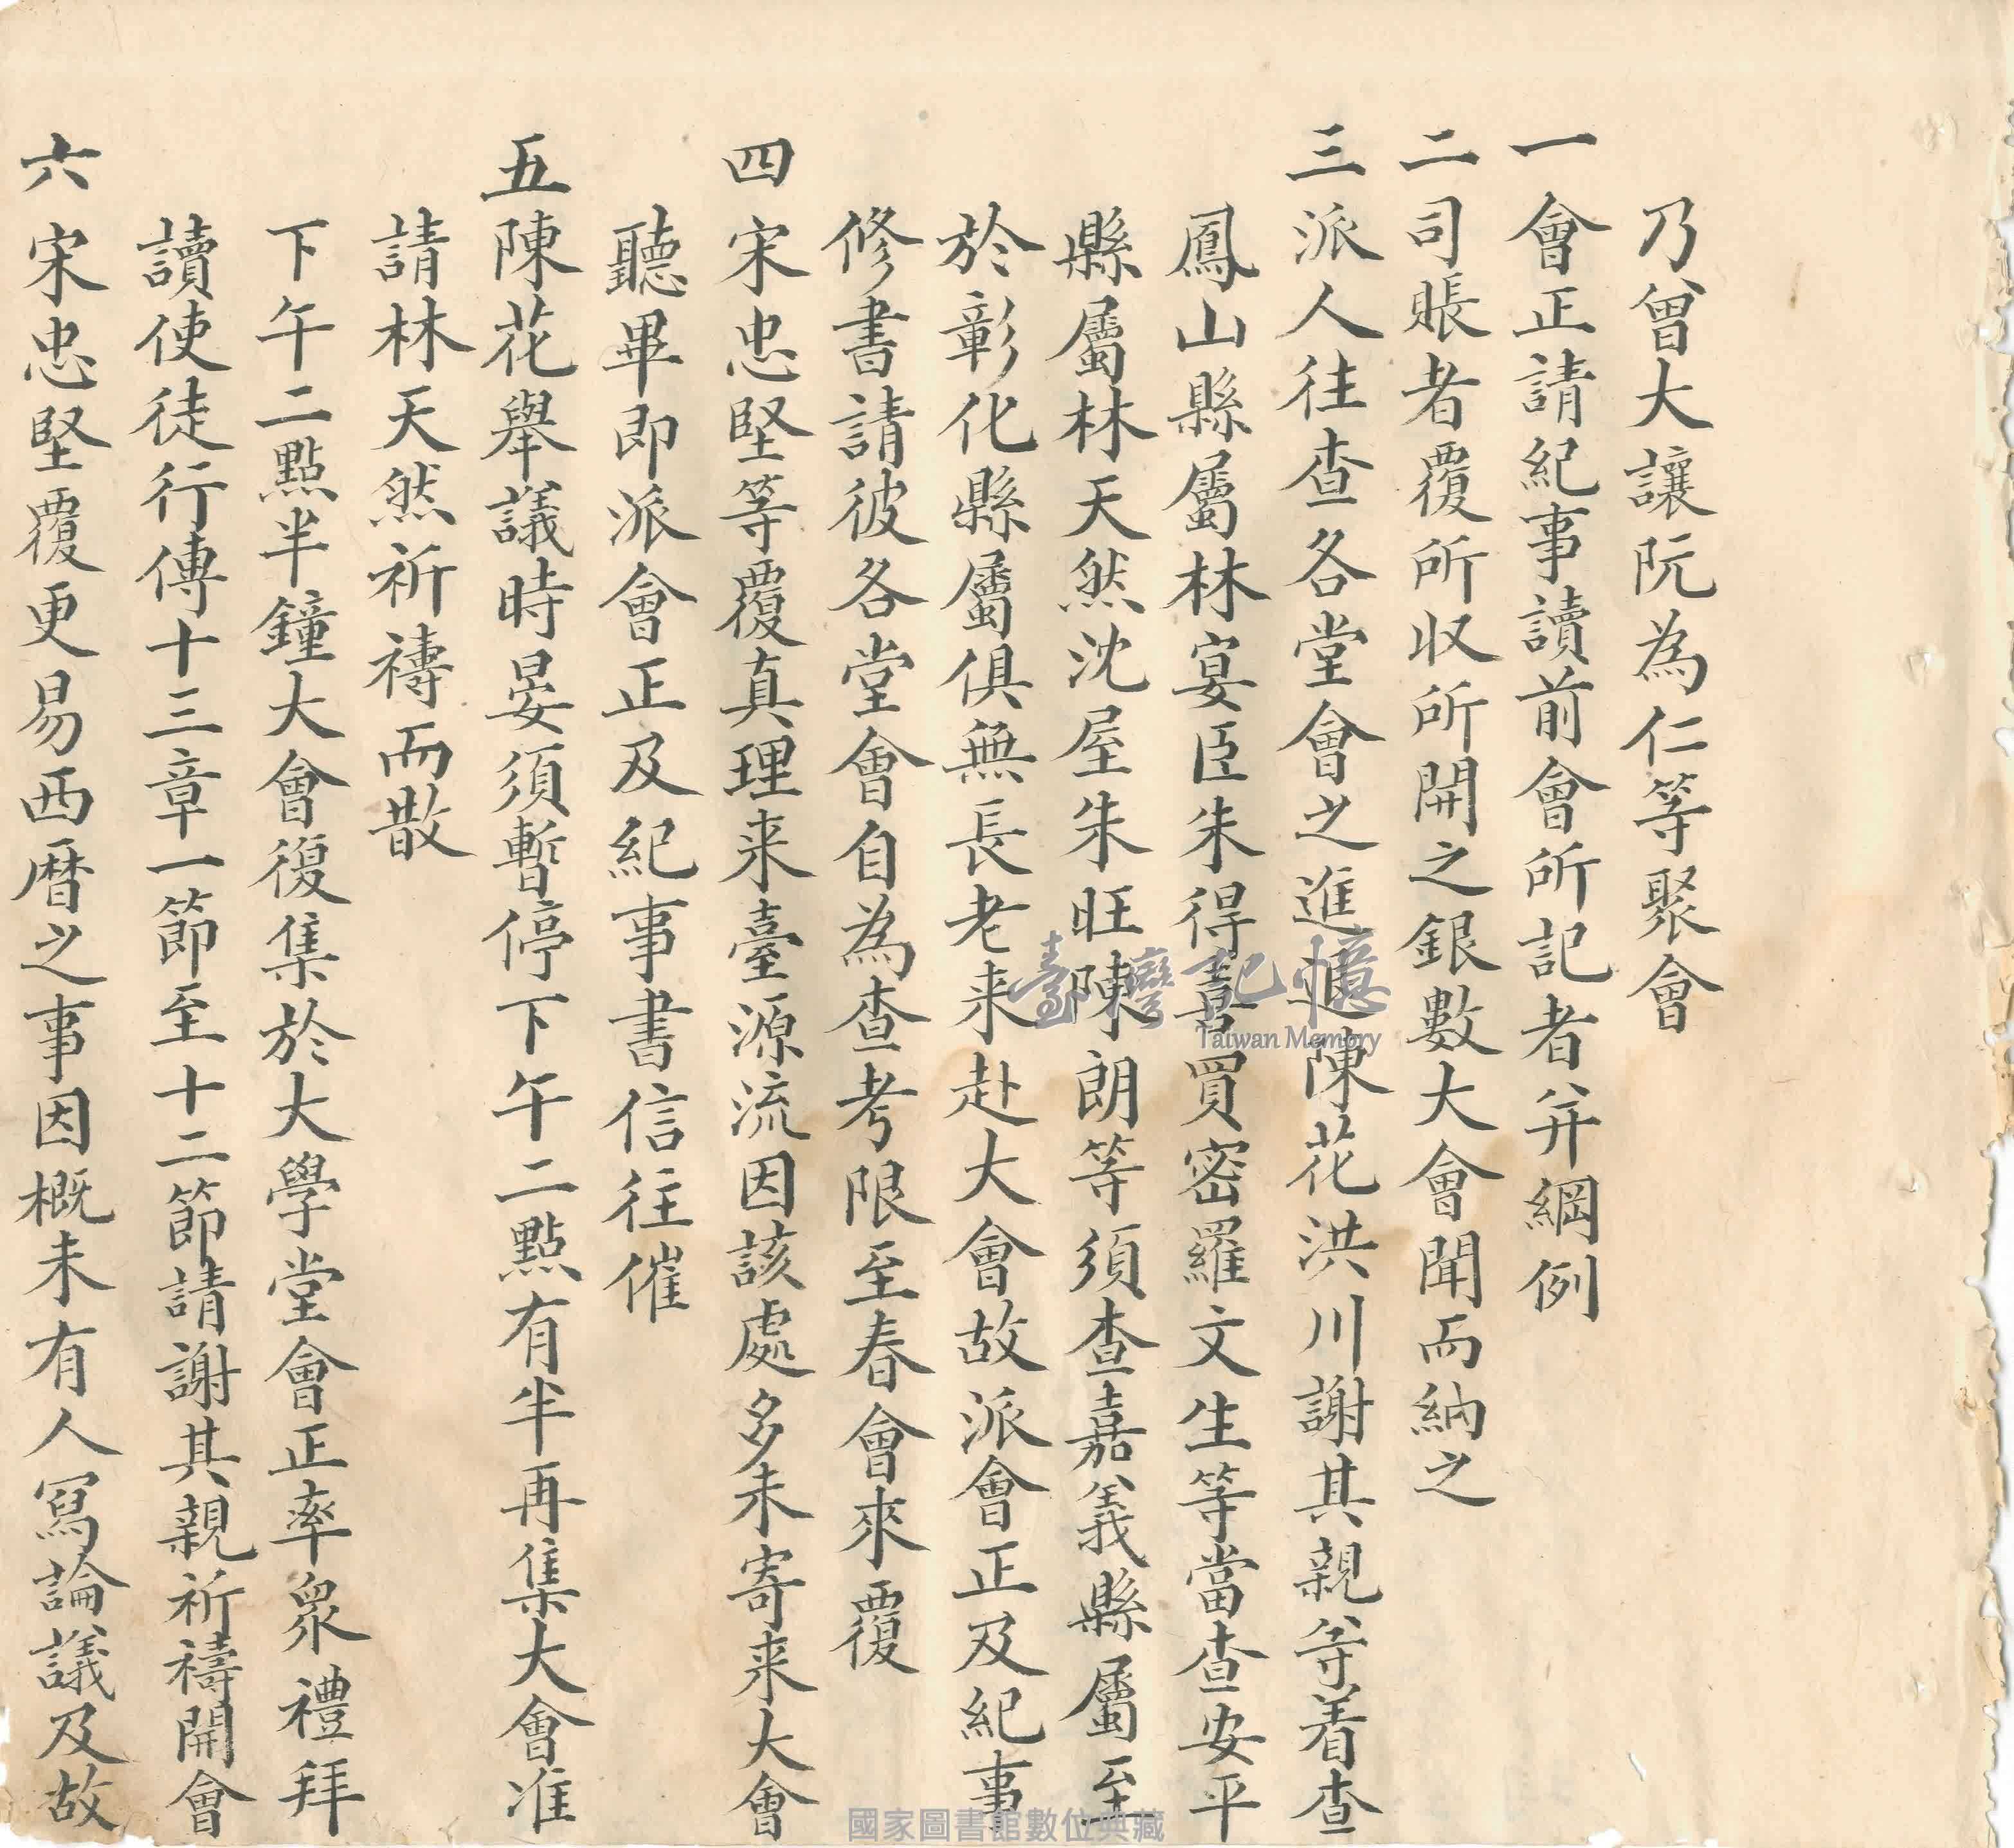 乃曾大讓阮為仁等聚會
一會正請紀事讀前會所記者并綱例
二司賬者覆所収所開之銀數大會聞而納之
三派人往查各堂會之進退陳花洪川謝其親等着查
鳳山縣屬林宴臣朱得喜買密羅文生等當查安平
縣屬林天然沈屋朱旺陳朗等須查嘉義縣屬至
於彰化縣屬俱無長老来赴大會故派會正及紀事
修書請彼各堂會自為查考限至春會來覆
四宋忠堅等覆真理来臺源流因該處多未寄来大會
聽畢即派會正及紀事書信往催
五陳花舉議時晏須暫停下午二點有半再集大會准
請林天然祈禱而散
下午二點半鐘大會復集於大學堂會正率眾禮拜
讀使徒行傳十三章一節至十二節請謝其親祈禱開會
六宋忠堅覆更易西曆之事因概未有人寫論議及故
臺灣記憶
Taiwan Memory
國家圖書館數位典藏